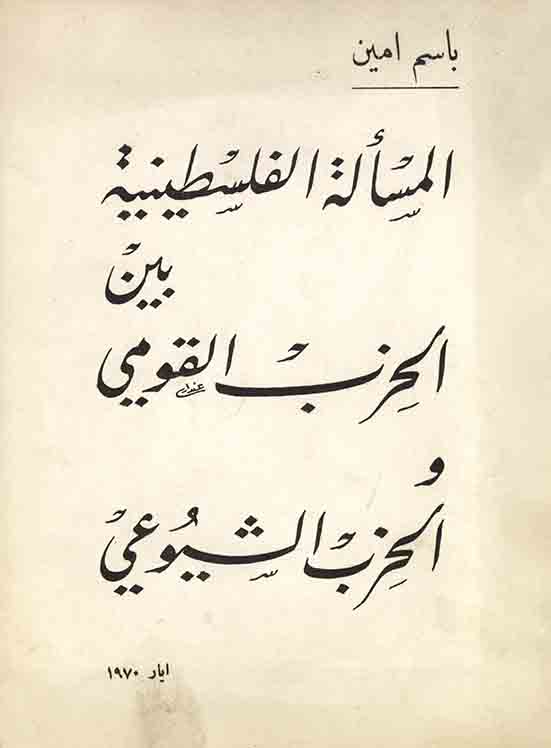 باسم امين
المسألة الفلسطينية
بين
الحزب القومي
و
الحزب الشيوعي
ايار ١٩٧٠